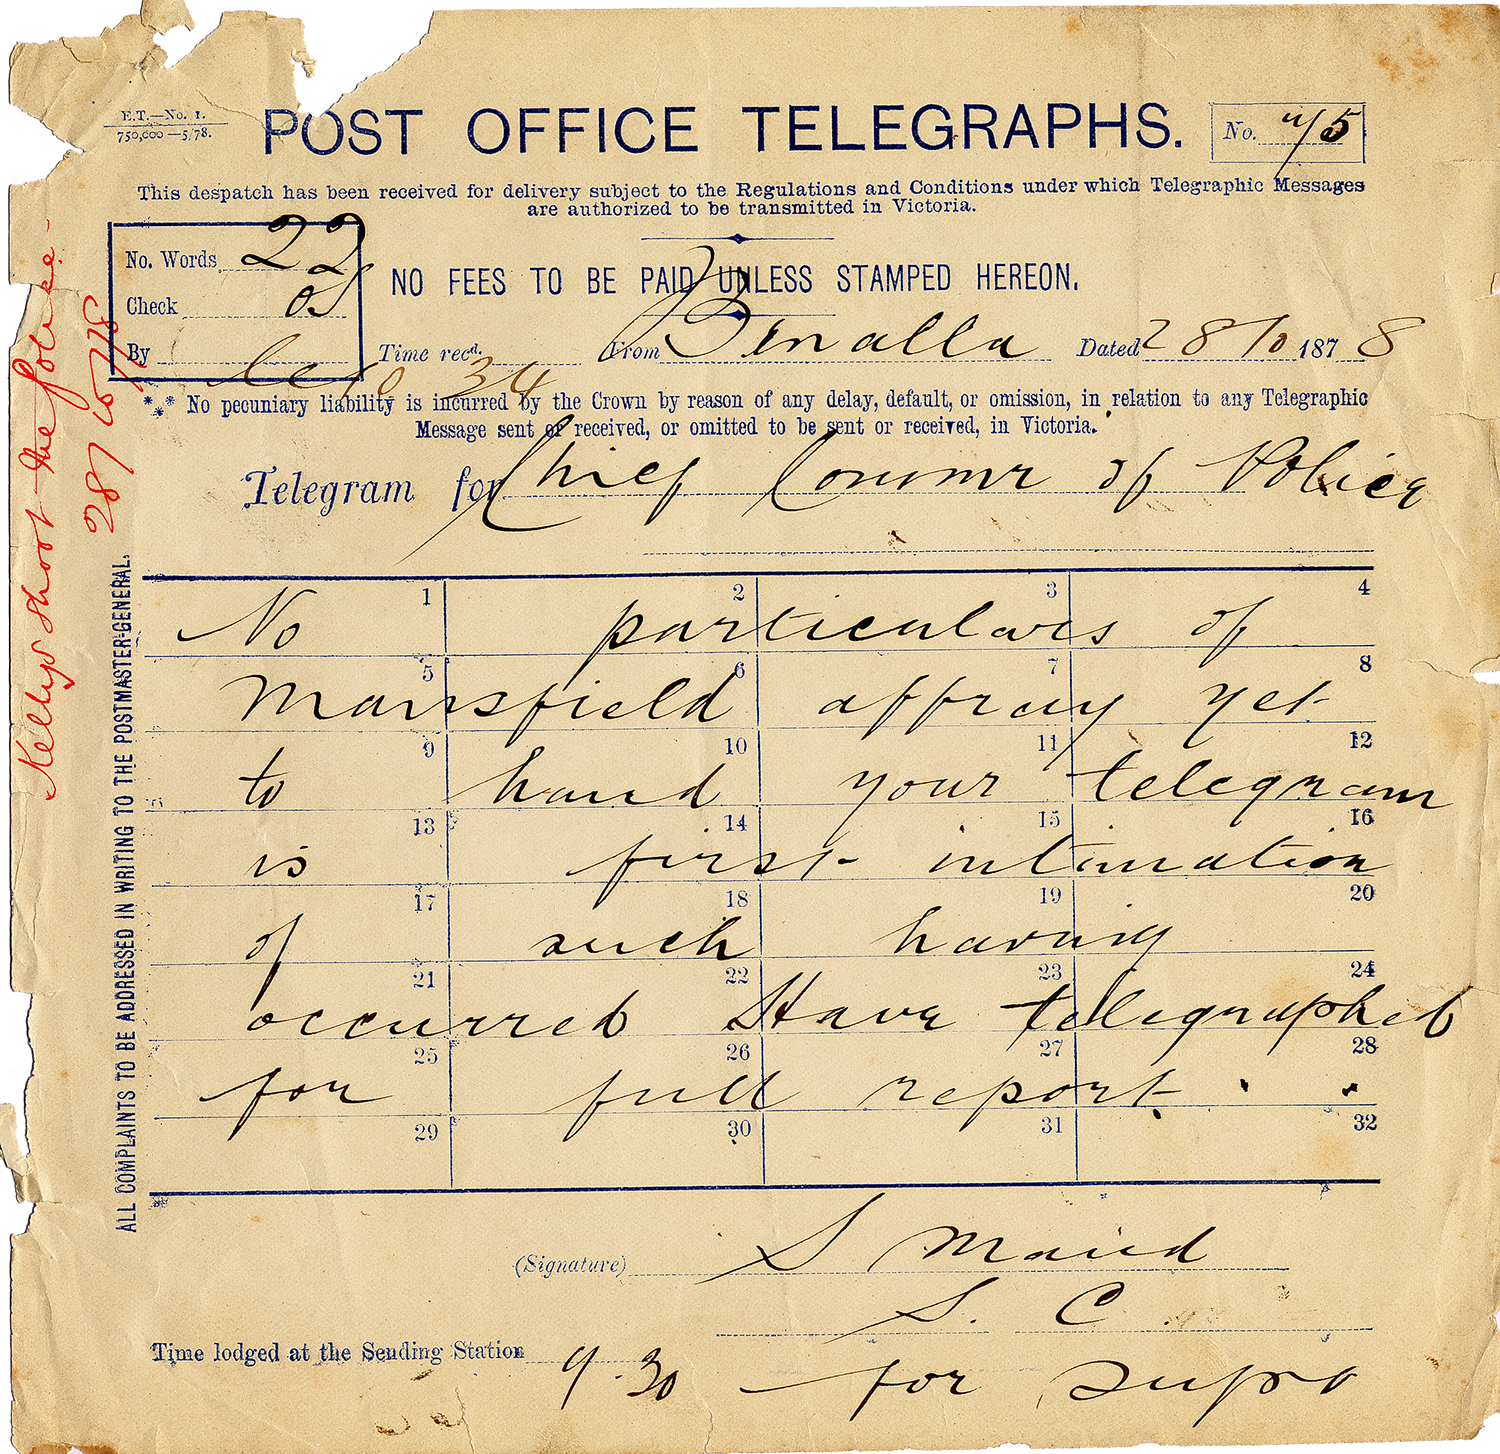 E.T.—No. 1.
750,000—5/78.
POST OFFICE TELEGRAPHS.
No.
This despatch has been received for delivery subject to the Regulations and Conditions under which Telegraphic Messages
are authorized to be transmitted in Victoria.
No. Words 22
Check
By
NO FEES TO BE PAID UNLESS STAMPED HEREON.
Time recd. 10 34 From Benalla Dated 28/10 1878
No pecuniary liability is incurred by the Crown by reason of any delay, default, or omission, in relation to any Telegraphic
Message sent or received, or omitted to be sent or received, in Victoria.
Telegram for Chief Commr of Police
1 2 3 4
No particulars of
5 6 7 8
Mansfield affray yet
9 10 11 12
to hand your telegram
13 14 15 16
is first intimation
17 18 19 20
of such having
21 22 23 24
occurred Have telegraphed
25 26 27 28
for full report.
29 30 31 32
(Signature) S Maud
S. C
Time lodged at the Sending Station 9.30 for Supt
ALL COMPLAINTS TO BE ADDRESSED IN WRITING TO THE POSTMASTER-GENERAL.
Kellys shoot the police.
28/10/78